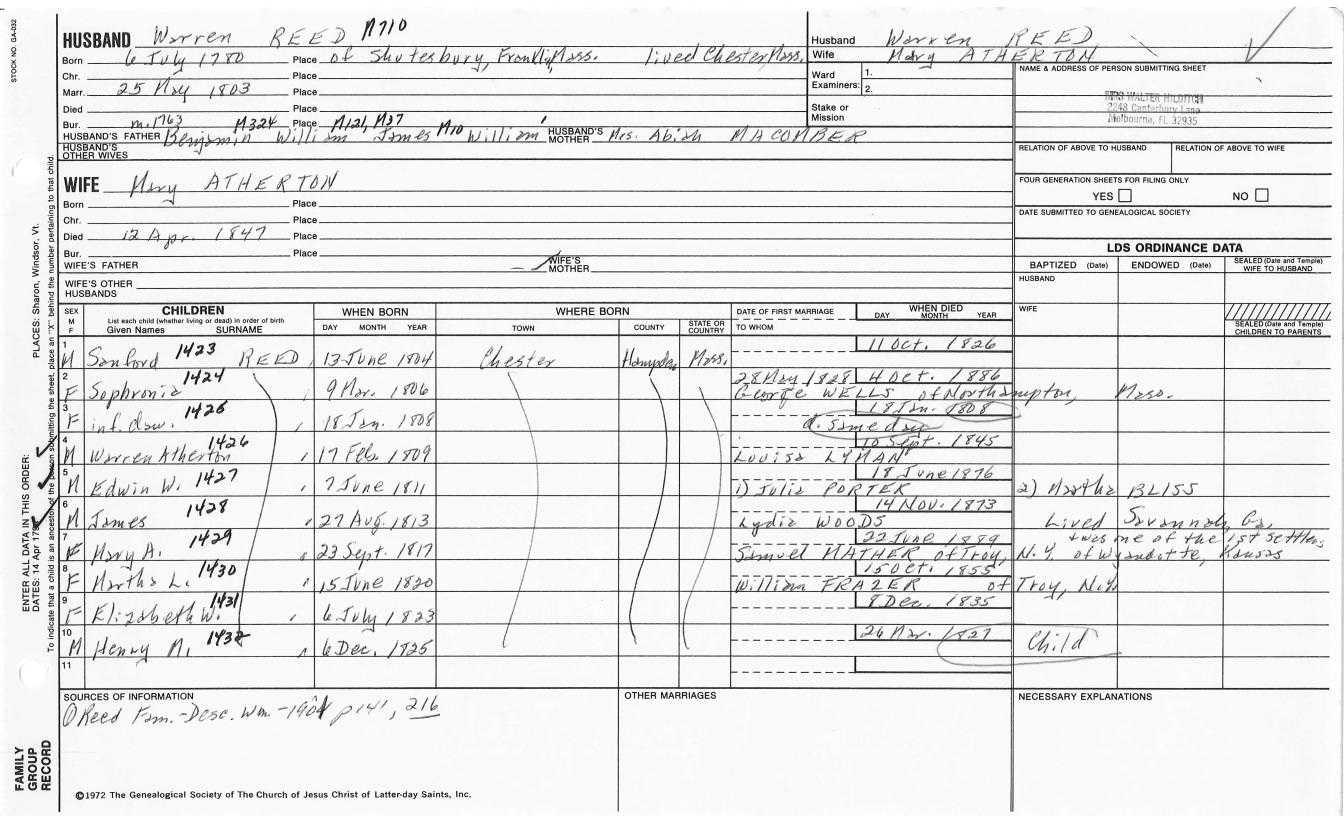 STOCK NO. GA-032
HUSBAND Warren REED M710
Born 6 July 1780 Place of Shutesbury, Franklin, Mass. lived Chester, Mass.
Chr. Place
Marr. 25 May 1803 Place
Died Place
Bur. Place
m. 1763 M324 M121, M37 M10
HUSBAND'S FATHER Benjamin William James William HUSBAND'S MOTHER Mrs. Abiah MACOMBER
HUSBAND'S OTHER WIVES
Husband Warren REED
Wife Mary ATHERTON
Ward Examiners: 1.
2.
Stake or Mission
NAME & ADDRESS OF PERSON SUBMITTING SHEET
MRS WALTER HILDITCH
2248 Canterbury Lane
Melbourne, FL 32935
RELATION OF ABOVE TO HUSBAND RELATION OF ABOVE TO WIFE
FOUR GENERATION SHEETS FOR FILING ONLY
YES NO
DATE SUBMITTED TO GENEALOGICAL SOCIETY
WIFE Mary ATHERTON
Born Place
Chr. Place
Died 12 Apr. 1847 Place
Bur. Place
WIFE'S FATHER WIFE'S MOTHER
WIFE'S OTHER HUSBANDS
LDS ORDINANCE DATA
BAPTIZED (Date) ENDOWED (Date) SEALED (Date and Temple) WIFE TO HUSBAND
HUSBAND
WIFE
SEALED (Date and Temple) CHILDREN TO PARENTS
SEX M F CHILDREN List each child (whether living or dead) in order of birth Given Names SURNAME
WHEN BORN DAY MONTH YEAR
WHERE BORN TOWN COUNTY STATE OR COUNTRY
DATE OF FIRST MARRIAGE TO WHOM
WHEN DIED DAY MONTH YEAR
1 M Sanford 1423 REED 13 June 1804 Chester Hampden Mass. 11 Oct. 1826
2 F Sophronia 1424 9 Mar. 1806 28 May 1828 4 Oct. 1886
George WELLS of Northampton, Mass.
3 F inf. daw. 1425 18 Jan. 1808 18 Jan. 1808
d. same day
4 M Warren Atherton 1426 17 Feb. 1809 10 Sept. 1845
Louisa LYMAN
5 M Edwin W. 1427 7 June 1811 18 June 1876
1) Julia PORTER 2) Martha BLISS
6 M James 1428 27 Aug. 1813 14 Nov. 1873
Lydia WOODS Lived Savannah, Ga.
& was one of the 1st settlers
7 F Mary A. 1429 23 Sept. 1817 22 June 1889
Samuel MATHER of Troy, N.Y. of Wyandotte, Kansas
8 F Martha L. 1430 15 June 1820 15 Oct. 1855
William FRAZER of Troy, N.Y.
9 F Elizabeth W. 1431 6 July 1823 8 Dec. 1835
10 M Henry M. 1432 6 Dec. 1825 26 Mar. 1827 Child
11
SOURCES OF INFORMATION
Reed Fam.-Desc. Wm.-1901 p 141, 216
OTHER MARRIAGES
NECESSARY EXPLANATIONS
©1972 The Genealogical Society of The Church of Jesus Christ of Latter-day Saints, Inc.
FAMILY GROUP RECORD
ENTER ALL DATA IN THIS ORDER:
DATES: 14 Apr 17
PLACES: Sharon, Windsor, Vt.
To indicate that a child is an ancestor of the person submitting the sheet, place an "X" behind the number pertaining to that child.